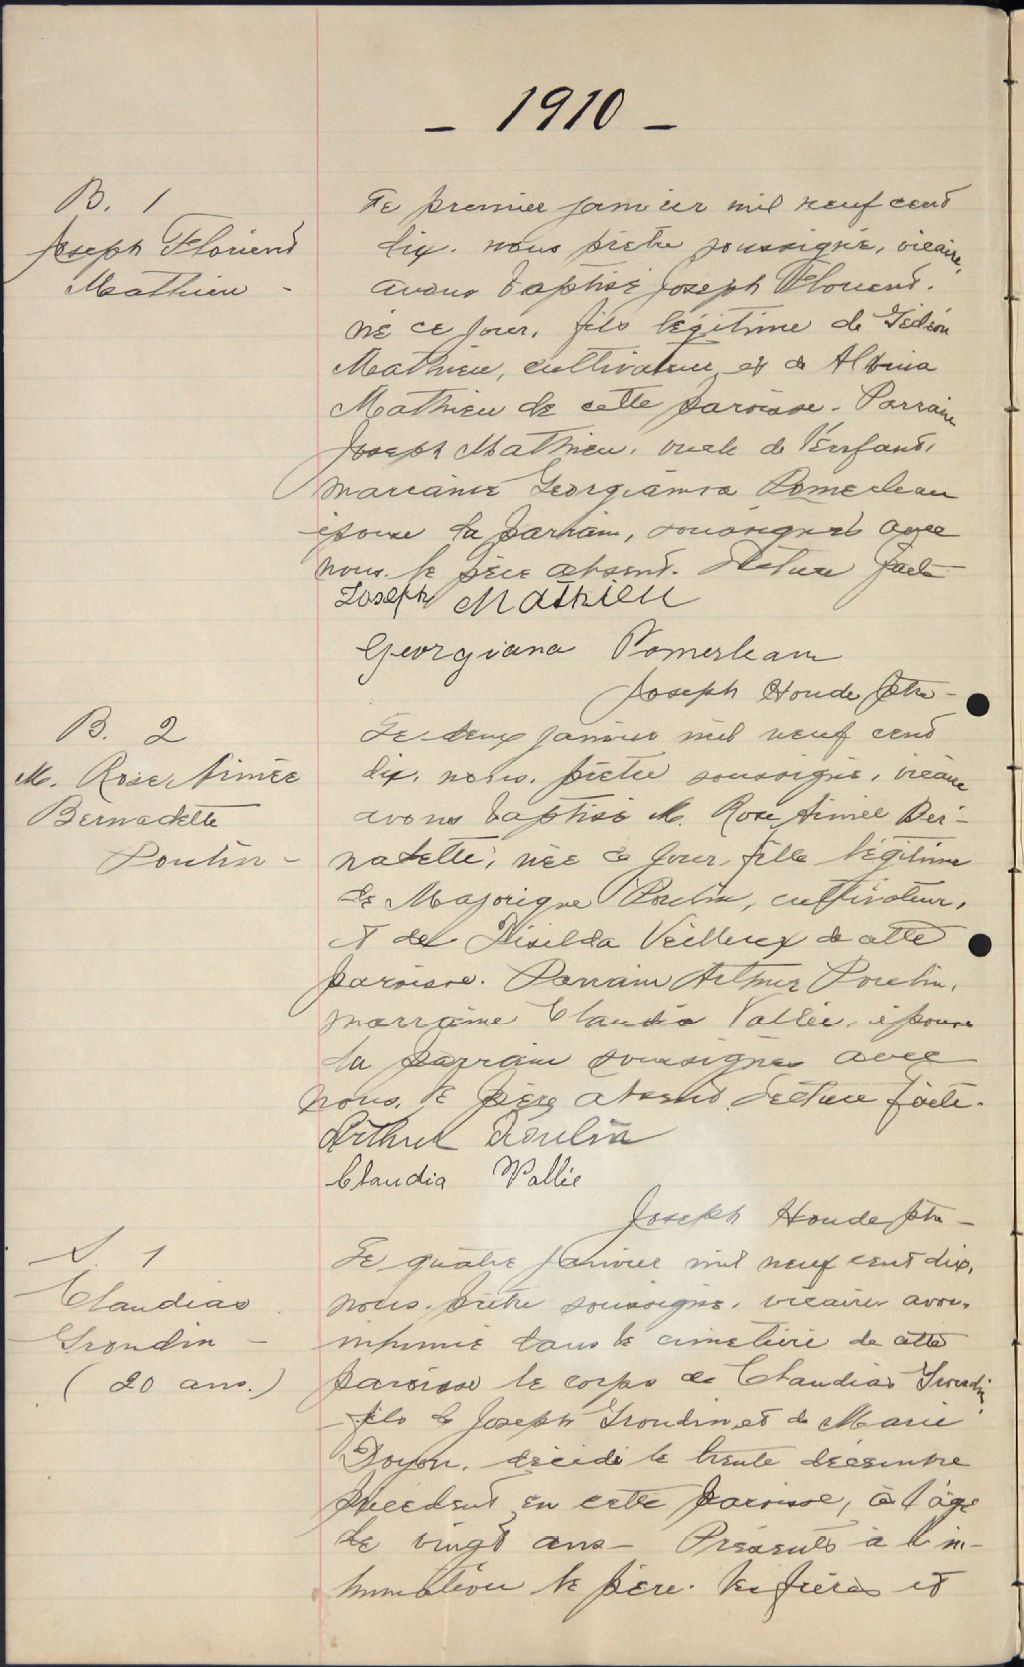 - 1910 -
B. 1
Joseph Floriend
Mathieu -
Le premier janvier mil neuf cent
dix. nous prêtre soussigné, vicaire,
avons baptisé Joseph Floriend.
né ce jour, fils légitime de Gédéon
Mathieu, cultivateur, et de Albina
Mathieu de cette paroisse. Parrain
Joseph Mathieu, oncle de l'enfant,
marraine Georgianna Pomerleau
épouse du parrain, soussignés avec
nous. le père absent. Lecture faite
Joseph Mathieu
Georgiana Pomerleau
Joseph Houde ptre -
B. 2
M. Rose Aimée
Bernadette
Poulin -
Le deux janvier mil neuf cent
dix, nous, prêtre soussigné, vicaire
avons baptisé M. Rose Aimée Ber-
nadette, née ce jour, fille légitime
de Majorique Poulin, cultivateur,
et de Veilleux de cette
paroisse. Parrain Arthur Poulin,
marraine Claudia Vallée, épouse
du parrain soussignés avec
nous, le père absent. Lecture faite.
Arthur Poulin
Claudia Vallée
Joseph Houde ptre -
S. 1
Claudias
Grondin -
(20 ans.)
Le quatre janvier mil neuf cent dix,
nous. prêtre soussigné, vicaire avons
inhumé dans le cimetière de cette
paroisse le corps de Claudias Grondin,
fils de Joseph Grondin et de Marie
Doyon, décédé le trente décembre
précédent en cette paroisse, à l'âge
de vingt ans - Présents à l'in-
humation le père. les frères et